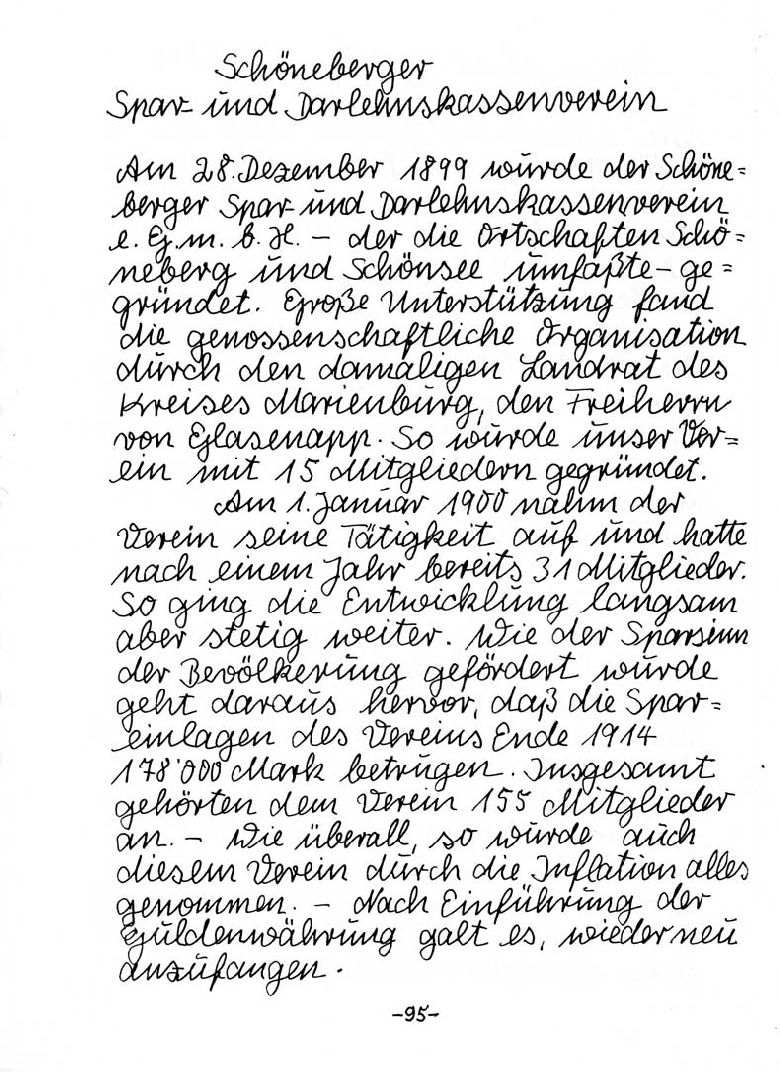 Schöneberger
Spar- und Darlehnskassenverein
Am 28. Dezember 1899 wurde der Schöne=
berger Spar- und Darlehnskassenverein
e. G. m. b. H. – der die Ortschaften Schö=
neberg und Schönsee umfaßte – ge=
gründet. Große Unterstützung fand
die genossenschaftliche Organisation
durch den damaligen Landrat des
Kreises Marienburg, den Freiherrn
von Glasenapp. So wurde unser Ver=
ein mit 15 Mitgliedern gegründet.
Am 1. Januar 1900 nahm der
Verein seine Tätigkeit auf und hatte
nach einem Jahr bereits 31 Mitglieder.
So ging die Entwicklung langsam
aber stetig weiter. Wie der Sparsinn
der Bevölkerung gefördert wurde
geht daraus hervor, daß die Spar=
einlagen des Vereins Ende 1914
178'000 Mark betrugen. Insgesamt
gehörten dem Verein 155 Mitglieder
an. – Wie überall, so wurde auch
diesem Verein durch die Inflation alles
genommen. – Nach Einführung der
Guldenwährung galt es, wieder neu
anzufangen.
-95-